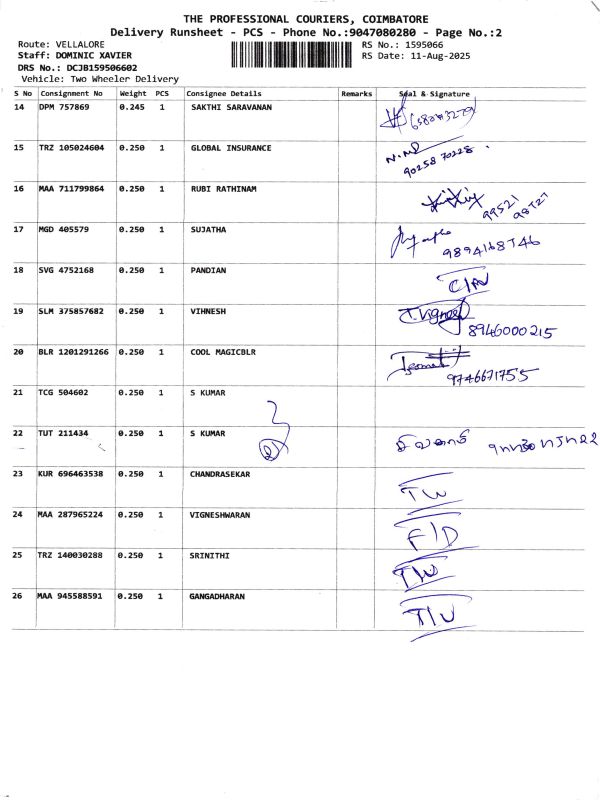 THE PROFESSIONAL COURIERS, COIMBATORE
Delivery Runsheet - PCS - Phone No.:9047080280 - Page No.:2
Route: VELLALORE RS No.: 1595066
Staff: DOMINIC XAVIER RS Date: 11-Aug-2025
DRS No.: DCJB159506602
Vehicle: Two Wheeler Delivery
S No Consignment No Weight PCS Consignee Details Remarks Seal & Signature
14 DPM 757869 0.245 1 SAKTHI SARAVANAN
15 TRZ 105024604 0.250 1 GLOBAL INSURANCE
90258 70228
16 MAA 711799864 0.250 1 RUBI RATHINAM
17 MGD 405579 0.250 1 SUJATHA
9894168746
18 SVG 4752168 0.250 1 PANDIAN
19 SLM 375857682 0.250 1 VIHNESH T. Vignesh
8946000215
20 BLR 1201291266 0.250 1 COOL MAGICBLR
9746671755
21 TCG 504602 0.250 1 S KUMAR
22 TUT 211434 0.250 1 S KUMAR
23 KUR 696463538 0.250 1 CHANDRASEKAR
24 MAA 287965224 0.250 1 VIGNESHWARAN F/D
25 TRZ 140030288 0.250 1 SRINITHI
26 MAA 945588591 0.250 1 GANGADHARAN